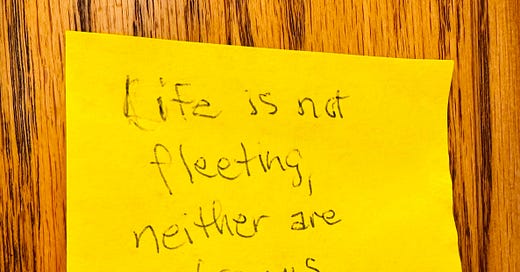 Life is not
fleeting,
neither are